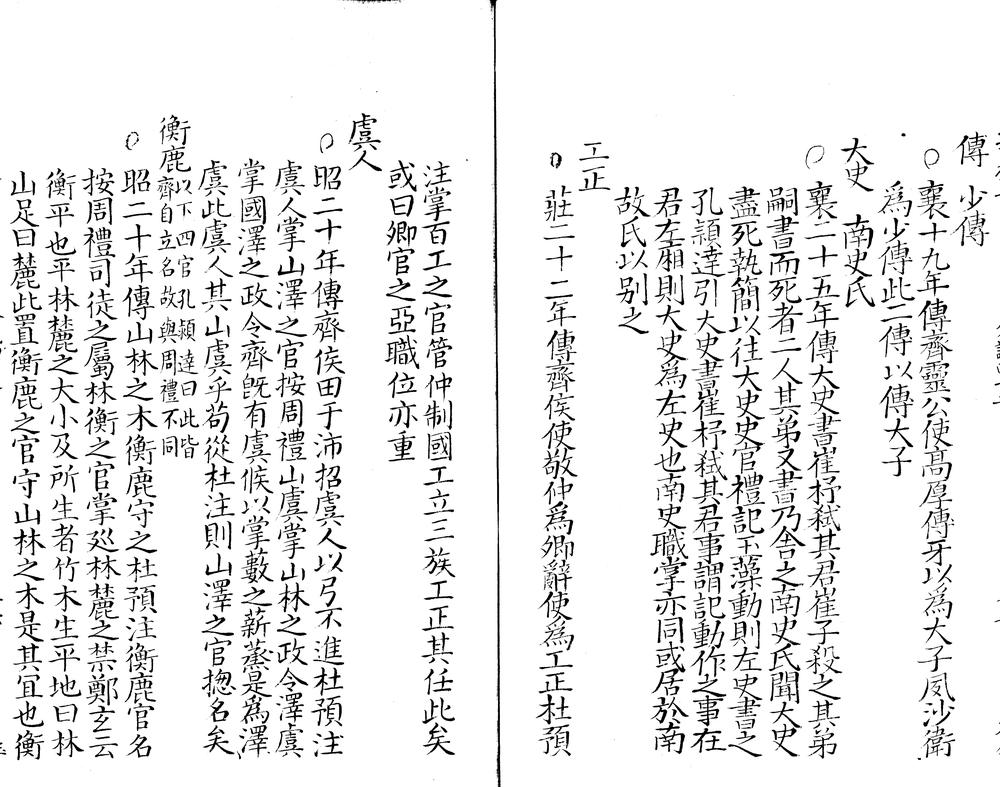 傳 少傅
○ 襄十九年傳齊靈公使高厚傅牙以為大子夙沙衛
為少傅此二傅以傅大子
大史 南史氏
○ 襄二十五年傳大史書崔杼弑其君崔子殺之其弟
嗣書而死者二人其弟又書乃舍之南史氏聞大史
盡死執簡以往大史史官禮記玉藻動則左史書之
孔頴達引大史書崔杼弑其君事謂記動作之事在
君左廂則大史為左史也南史職掌亦同或居於南
故氏以别之
工正
○ 莊二十二年傳齊侯使敬仲為卿辭使為工正杜預
注掌百工之官管仲制國工立三族工正其任此矣
或曰卿官之亞職位亦重
虞人
○ 昭二十年傳齊侯田于沛招虞人以弓不進杜預注
虞人掌山澤之官按周禮山虞掌山林之政令澤虞
掌國澤之政令齊旣有虞候以掌藪之薪蒸是為澤
虞此虞人其山虞乎苟從杜注則山澤之官摠名矣
衡鹿以下四官孔頴達曰此皆
齊自立名故與周禮不同
○ 昭二十年傳山林之木衡鹿守之杜預注衡鹿官名
按周禮司徒之屬林衡之官掌廵林麓之禁鄭玄云
衡平也平林麓之大小及所生者竹木生平地曰林
山足曰麓此置衡鹿之官守山林之木是其冝也衡